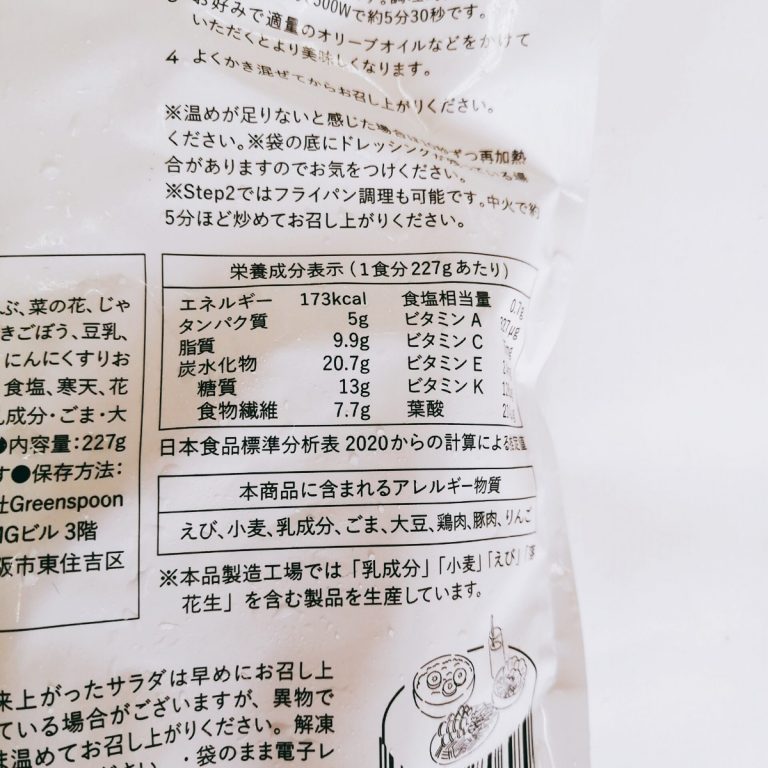 500Wで約5分30秒です。
お好みで適量のオリーブオイルなどをかけて
いただくとより美味しくなります。
4 よくかき混ぜてからお召し上がりください。
※温めが足りないと感じた場合は ずつ再加熱
ください。※袋の底にドレッシングが ている場
合がありますのでお気をつけください。
※Step2ではフライパン調理も可能です。中火で約
5分ほど炒めてお召し上がりください。
栄養成分表示（1食分227gあたり）
エネルギー 173kcal 食塩相当量 0.7g
タンパク質 5g ビタミンA
脂質 9.9g ビタミンC
炭水化物 20.7g ビタミンE
糖質 13g ビタミンK
食物繊維 7.7g 葉酸
日本食品標準分析表2020からの計算による推定値
本商品に含まれるアレルギー物質
えび、小麦、乳成分、ごま、大豆、鶏肉、豚肉、りんご
※本品製造工場では「乳成分」「小麦」「えび」「落
花生」を含む製品を生産しています。
ぶ、菜の花、じゃ
きごぼう、豆乳、
にんにくすりお
食塩、寒天、花
乳成分・ごま・大
●内容量：227g
す●保存方法：
社Greenspoon
MGビル 3階
阪市東住吉区
来上がったサラダは早めにお召し上
ている場合がございますが、異物で
温めてお召し上がりください。解凍
ください。・袋のまま電子レ